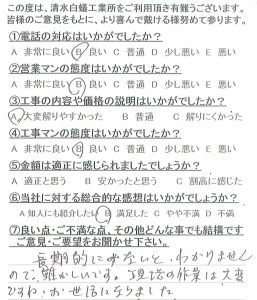 この度は、清水白蟻工業所をご利用頂き有難うございます。
皆様のご意見をもとに、より喜んで戴ける様努めて参ります。
①電話の対応はいかがでしたか?
A 非常に良い B 良い C 普通 D 少し悪い E 悪い
②営業マンの態度はいかがでしたか?
A 非常に良い B 良い C 普通 D 少し悪い E 悪い
③工事の内容や価格の説明はいかがでしたか?
A 大変解りやすかった B 普通 C 解りにくかった
④工事マンの態度はいかがでしたか?
A 非常に良い B 良い C 普通 D 少し悪い E 悪い
⑤金額は適正に感じられましたでしょうか?
A 適正と思う B 安かったと思う C 割高に感じた
⑥当社に対する総合的な感想はいかがでしょうか?
A 知人にも紹介したい B 満足した C やや不満 D 不満
⑦良い点・ご不満な点、その他どんな事でも結構です
ご意見・ご要望をお聞かせ下さい。
長期的にみないと、わかりません
ので、難かしいです。現場の作業は大変
ですね。お世話になりました